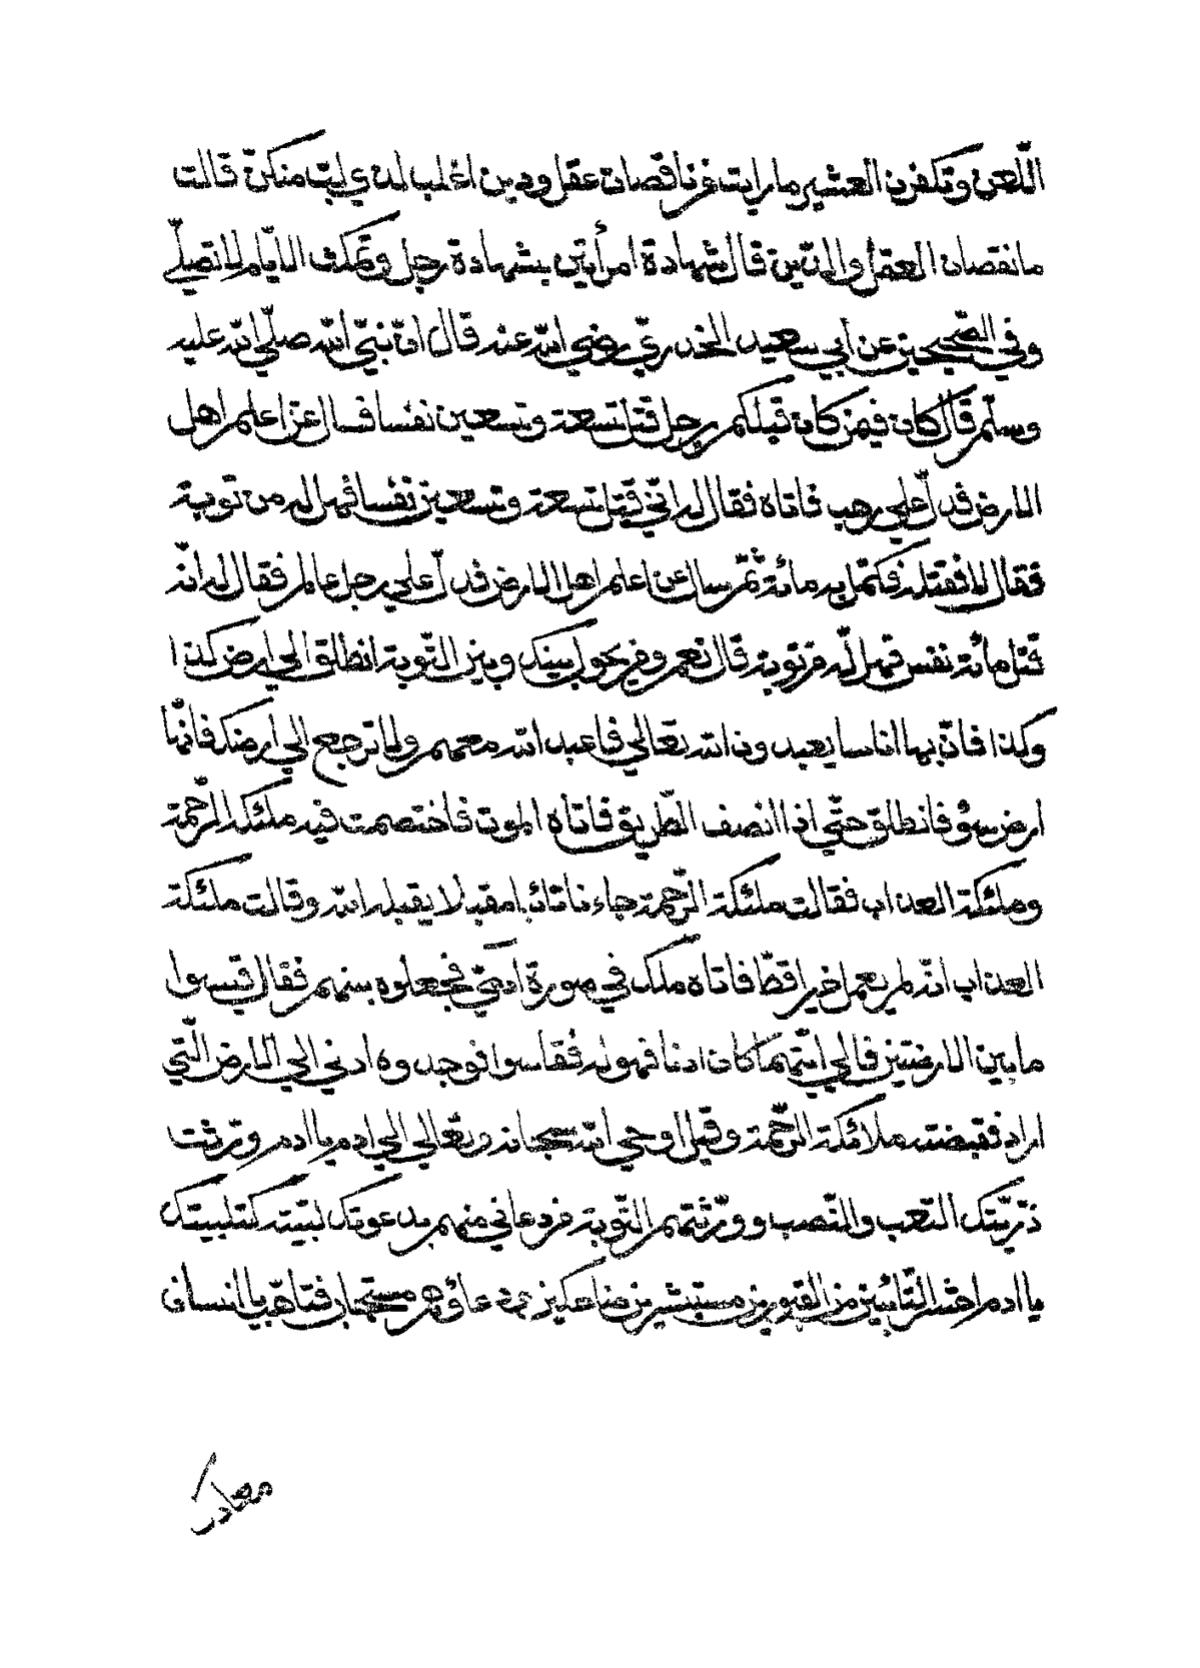 اللعن وتكفرن العشير ما رايت من ناقصات عقل ودين اغلب لذي لب منكنّ قالت
ما نقصان العقل والدّين قال شهادة امرأتين بشهادة رجل وتمكث الايّام لا تصلّي
وفي الصّحيحين عن ابي سعيد الخدريّ رضي الله عنه قال انّ نبيّ الله صلّي الله عليه
وسلّم قال كان فيمن كان قبلكم رجل قتل تسعة وتسعين نفسا فسال عن اعلم اهل
الارض فدلّ علي رهب فاتاه فقال له انّي قتل تسعة وتسعين نفسا فهل له من توبة
فقال لا فقتله فكمّل به مائة ثمّ سال عن اعلم اهل الارض فدلّ علي رجل عالم فقال له انّه
قتل مائة نفس فهل له من توبة قال نعم ومن يحول بينك وبين التّوبة انطلق الي ارض كذا
وكذا فانّ بها اناسا يعبدون الله تعالي فاعبد الله معهم ولا ترجع الي ارضك فانّها
ارض سوء فانطلق حتّي اذا انصف الطّريق فاتاه الموت فاختصمت فيه ملئكة الرّحمة
وملئكة العذاب فقالت ملئكة الرّحمة جاءنا تائبا مقبلا يقبله الله وقالت ملئكة
العذاب انّه لم يعمل خيرا قطّ فاتاه ملك في صورة ادميّ فجعلوه بينهم فقال قيسوا
ما بين الارضتين فالي ايّتهما كان ادنا فهو له فقاسوا فوجدوه ادني الي الارض الّتي
اراد فقبضته ملائكة الرّحمة وقيل اوحي الله سبحانه وتعالي الي ادم يا ادم ورّثت
ذرّيّتك التّعب والنّصب وورّثتهم التّوبة فمن دعاني منهم بدعوتك لبّيته كتلبيتك
يا ادم احشر التّائبين من القبور مستبشرين ضاحكين ودعاؤهم مستجاب فتاهّب يا انسان